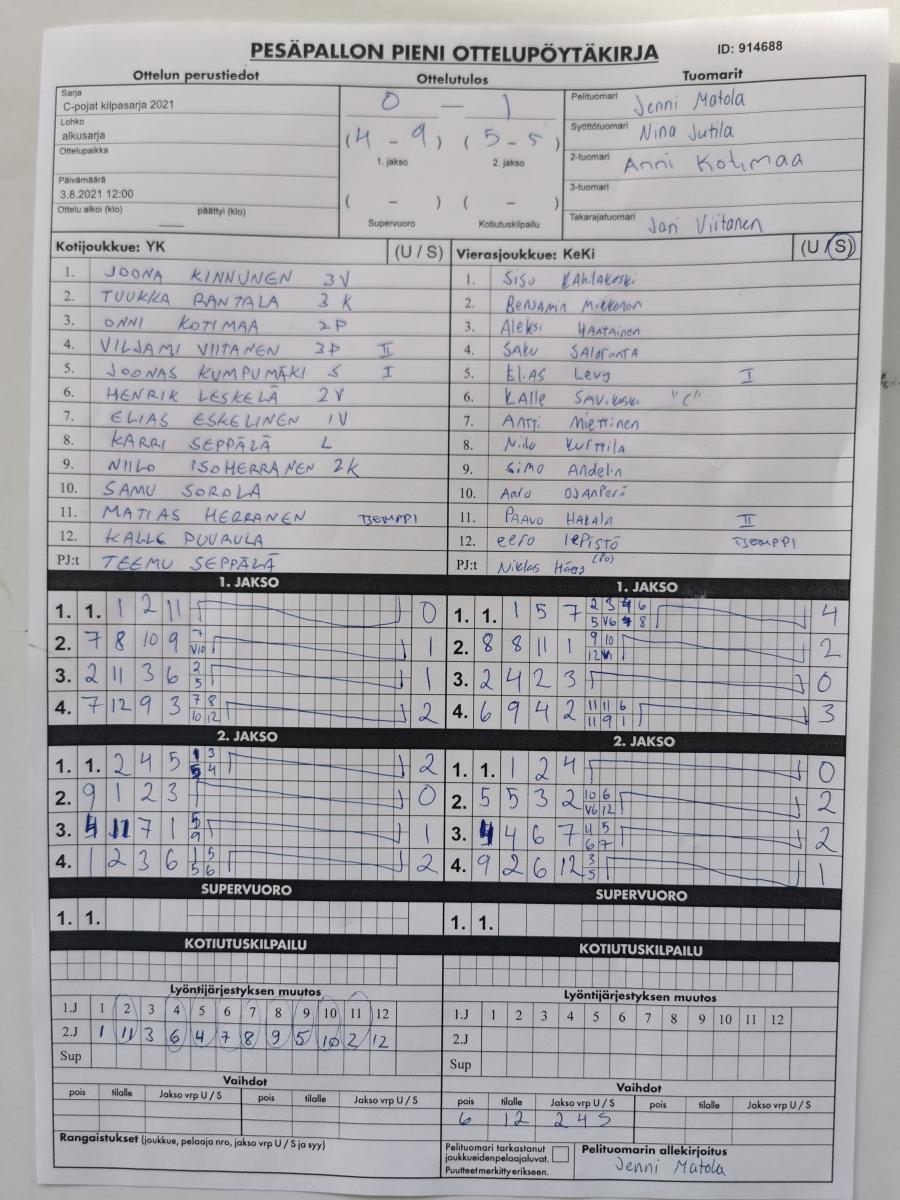 PESÄPALLON PIENI OTTELUPÖYTÄKIRJA ID: 914688
Ottelun perustiedot Ottelutulos Tuomarit
Sarja
C-pojat kilpasarja 2021
Lohko
alkusarja
Ottelupaikka
Päivämäärä
3.8.2021 12:00
Ottelu alkoi (klo) päättyi (klo)
0 — 1
(4 - 9) (5 - 5)
1. jakso 2. jakso
( - ) ( - )
Supervuoro Kotiutuskilpailu
Pelituomari Jenni Matola
Syöttötuomari Nina Jutila
2-tuomari Anni Kotimaa
3-tuomari
Takarajatuomari Jari Viitanen
Kotijoukkue: YK (U / S)
1. JOONA KINNUNEN 3V
2. TUUKKA RANTALA 3K
3. ONNI KOTIMAA 2P
4. VILJAMI VIITANEN 3P II
5. JOONAS KUMPUMÄKI S I
6. HENRIK LESKELÄ 2V
7. ELIAS ESKELINEN 1V
8. KARRI SEPPÄLÄ L
9. NIILO ISOHERRANEN 2K
10. SAMU SOROLA
11. MATIAS HERRANEN TJEMPPI
12. KALLE PUURULA
PJ:t TEEMU SEPPÄLÄ
Vierasjoukkue: KeKi (U / S)
1. Sisu Kahilakoski
2. Benjamin Mikkonen
3. Aleksi Hantainen
4. SAKU SALORANTA
5. Elias Levy I
6. Kalle SAVikoski "C"
7. Antti Miettinen
8. Niilo Kurttila
9. Simo Andelin
10. Aaro OJANPerä
11. PAAVO HAKALA II
12. eero lePiSTÖ TJEMPPI
PJ:t Niklas (PO)
1. JAKSO
1. 1. 1 2 11 0
2. 7 8 10 9 7 V10 1
3. 2 11 3 6 2 5 1
4. 7 12 9 3 7 8 10 12 2
2. JAKSO
1. 1. 2 4 5 1 3 5 4 2
2. 9 1 2 3 0
3. 4 11 7 1 5 9 1
4. 1 2 3 6 1 5 5 6 2
SUPERVUORO
1. 1.
KOTIUTUSKILPAILU
1. JAKSO
1. 1. 1 5 7 2 3 4 6 5 V6 7 8 4
2. 8 8 11 1 9 10 12 V1 2
3. 2 4 2 3 0
4. 6 9 4 2 11 11 6 11 9 1 3
2. JAKSO
1. 1. 1 2 4 0
2. 5 5 3 2 10 6 V6 12 2
3. 4 4 6 7 11 5 6 7 2
4. 9 2 6 12 3 5 1
SUPERVUORO
1. 1.
KOTIUTUSKILPAILU
Lyöntijärjestyksen muutos
1.J 1 2 3 4 5 6 7 8 9 10 11 12
2.J 1 11 3 6 4 7 8 9 5 10 2 12
Sup
Vaihdot
pois tilalle Jakso vrp U / S pois tilalle Jakso vrp U / S
Rangaistukset (joukkue, pelaaja nro, jakso vrp U / S ja syy)
Lyöntijärjestyksen muutos
1.J 1 2 3 4 5 6 7 8 9 10 11 12
2.J
Sup
Vaihdot
pois tilalle Jakso vrp U / S pois tilalle Jakso vrp U / S
6 12 2 4 S
Pelituomari tarkastanut
joukkueidenpelaajaluvat.
Puutteet merkitty erikseen.
Pelituomarin allekirjoitus
Jenni Matola